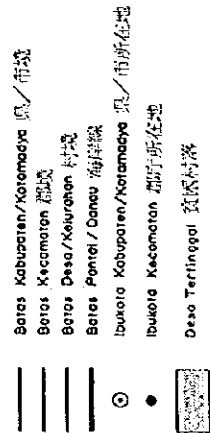 Batas Kabupaten/Kotamadya 県／市境
Batas Kecamatan 郡境
Batas Desa/Kelurahan 村境
Batas Pantai/Danau 海岸線
Ibukota Kabupaten/Kotamadya 県／市所在地
Ibukota Kecamatan 郡庁所在地
Desa Tertinggal 貧困村落